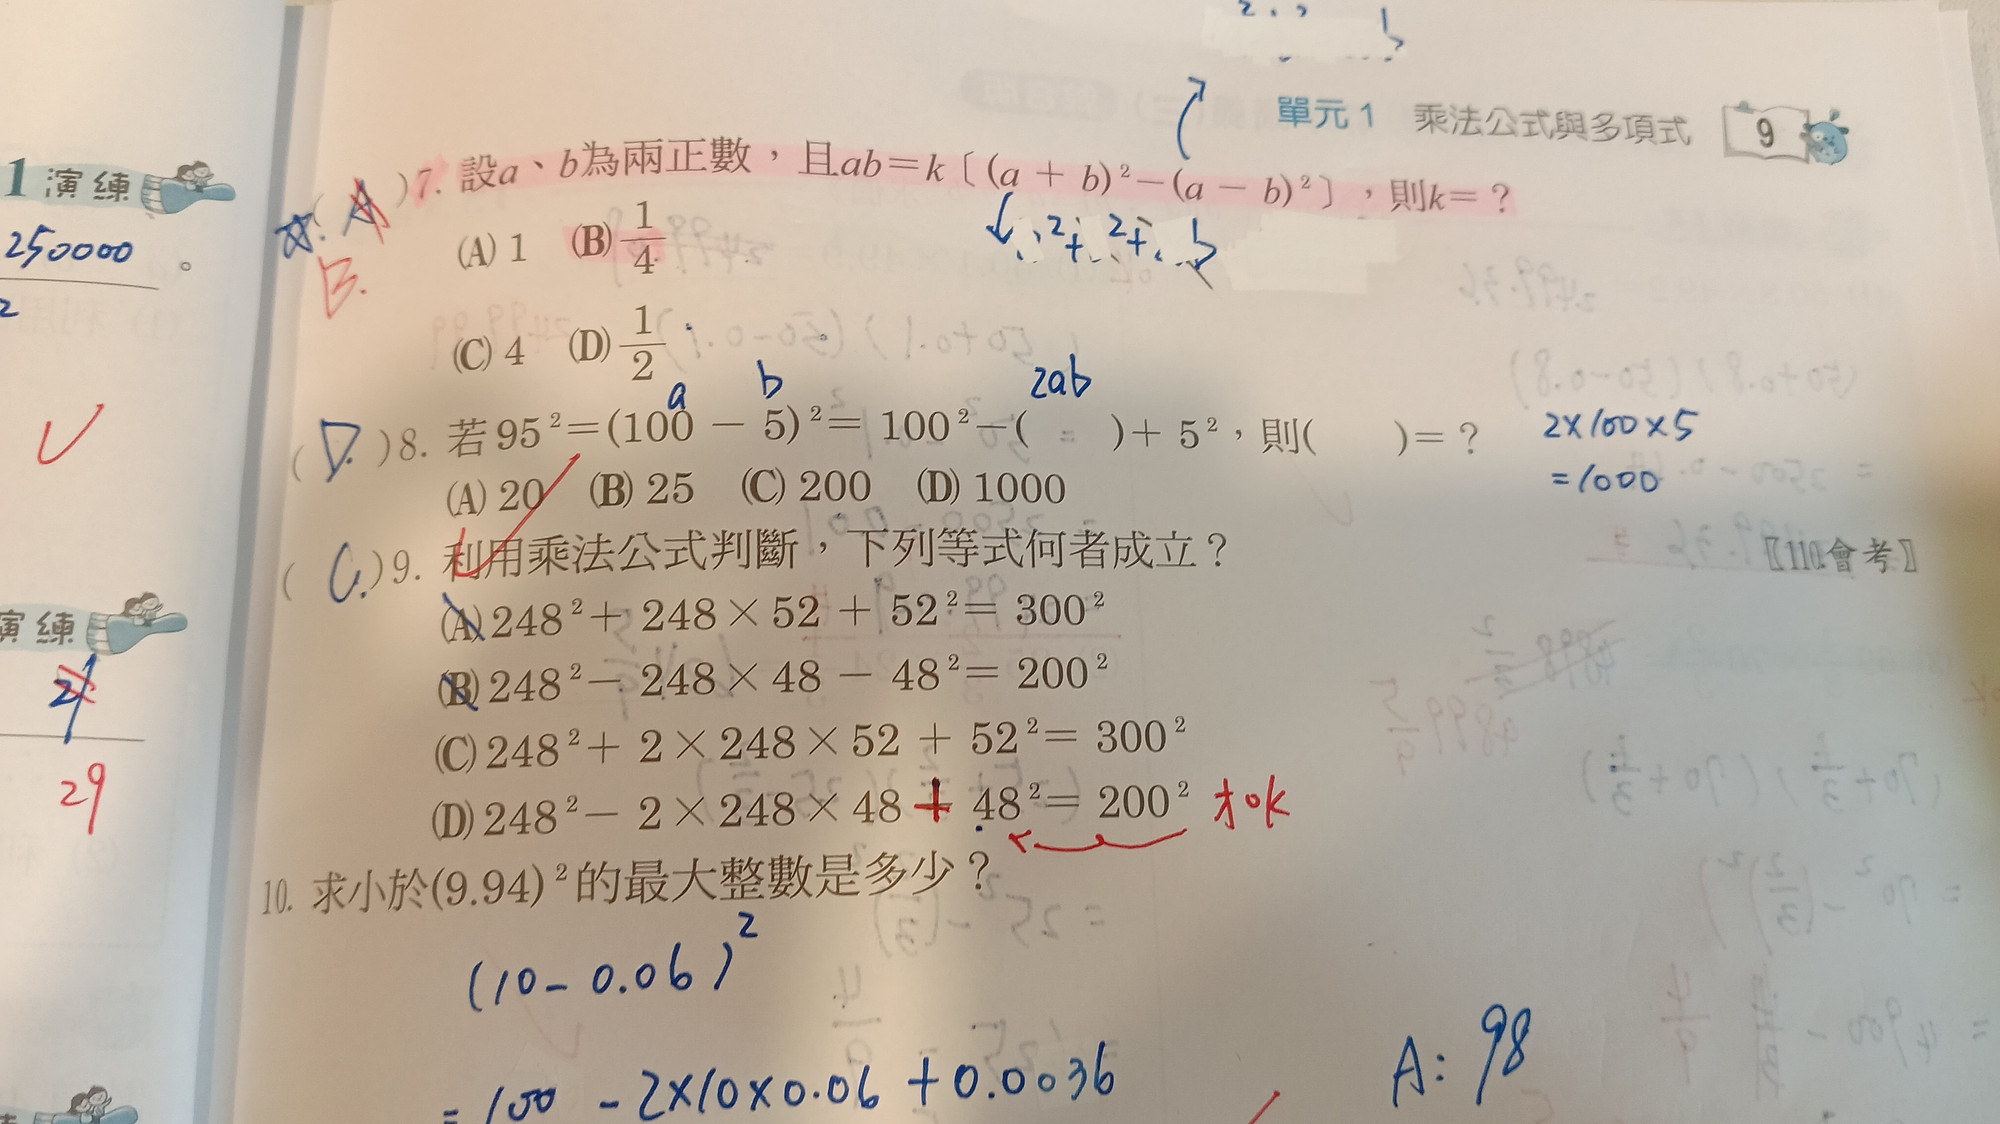 單元1 乘法公式與多項式 9
1 演練
250000 。
2
☆: A
B.
( )7. 設a、b為兩正數，且ab=k〔(a + b)²-(a - b)²〕，則k=？
(A) 1 (B) 1/4
²+ ²+ b
(C) 4 (D) 1/2
a b 2ab
( D. )8. 若 95²=(100 - 5)²= 100²-( )+ 5²，則( )=？
2×100×5
=1000
(A) 20 (B) 25 (C) 200 (D) 1000
( C. )9. 利用乘法公式判斷，下列等式何者成立？
〖110.會考〗
(A) 248²+ 248 × 52 + 52²= 300²
(B) 248²- 248 × 48 - 48²= 200²
(C) 248²+ 2 × 248 × 52 + 52²= 300²
(D) 248²- 2 × 248 × 48 + 48²= 200² 才ok
演練
29
10. 求小於(9.94)²的最大整數是多少？
(10-0.06)²
=100 -2×10×0.06 +0.0036
A: 98